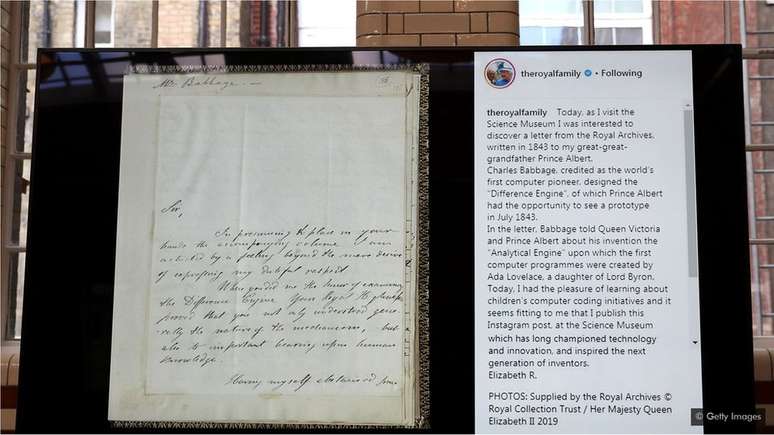 Mr Babbage. —
Sir,
In presuming to place in your
hands the accompanying volume I am
actuated by a feeling beyond the mere desire
of expressing my dutiful respect
When you did me the honor of examining
the Difference Engine Your Royal Highness
proved that you not only understood gene-
rally the nature of the mechanism, but
also its important bearing upon human
knowledge.
Having myself abstained from
theroyalfamily • Following
theroyalfamily Today, as I visit the
Science Museum I was interested to
discover a letter from the Royal Archives,
written in 1843 to my great-great-
grandfather Prince Albert.
Charles Babbage, credited as the world's
first computer pioneer, designed the
"Difference Engine", of which Prince Albert
had the opportunity to see a prototype
in July 1843.
In the letter, Babbage told Queen Victoria
and Prince Albert about his invention the
"Analytical Engine" upon which the first
computer programmes were created by
Ada Lovelace, a daughter of Lord Byron.
Today, I had the pleasure of learning about
children's computer coding initiatives and it
seems fitting to me that I publish this
Instagram post, at the Science Museum
which has long championed technology
and innovation, and inspired the next
generation of inventors.
Elizabeth R.
PHOTOS: Supplied by the Royal Archives ©
Royal Collection Trust / Her Majesty Queen
Elizabeth II 2019
© Getty Images